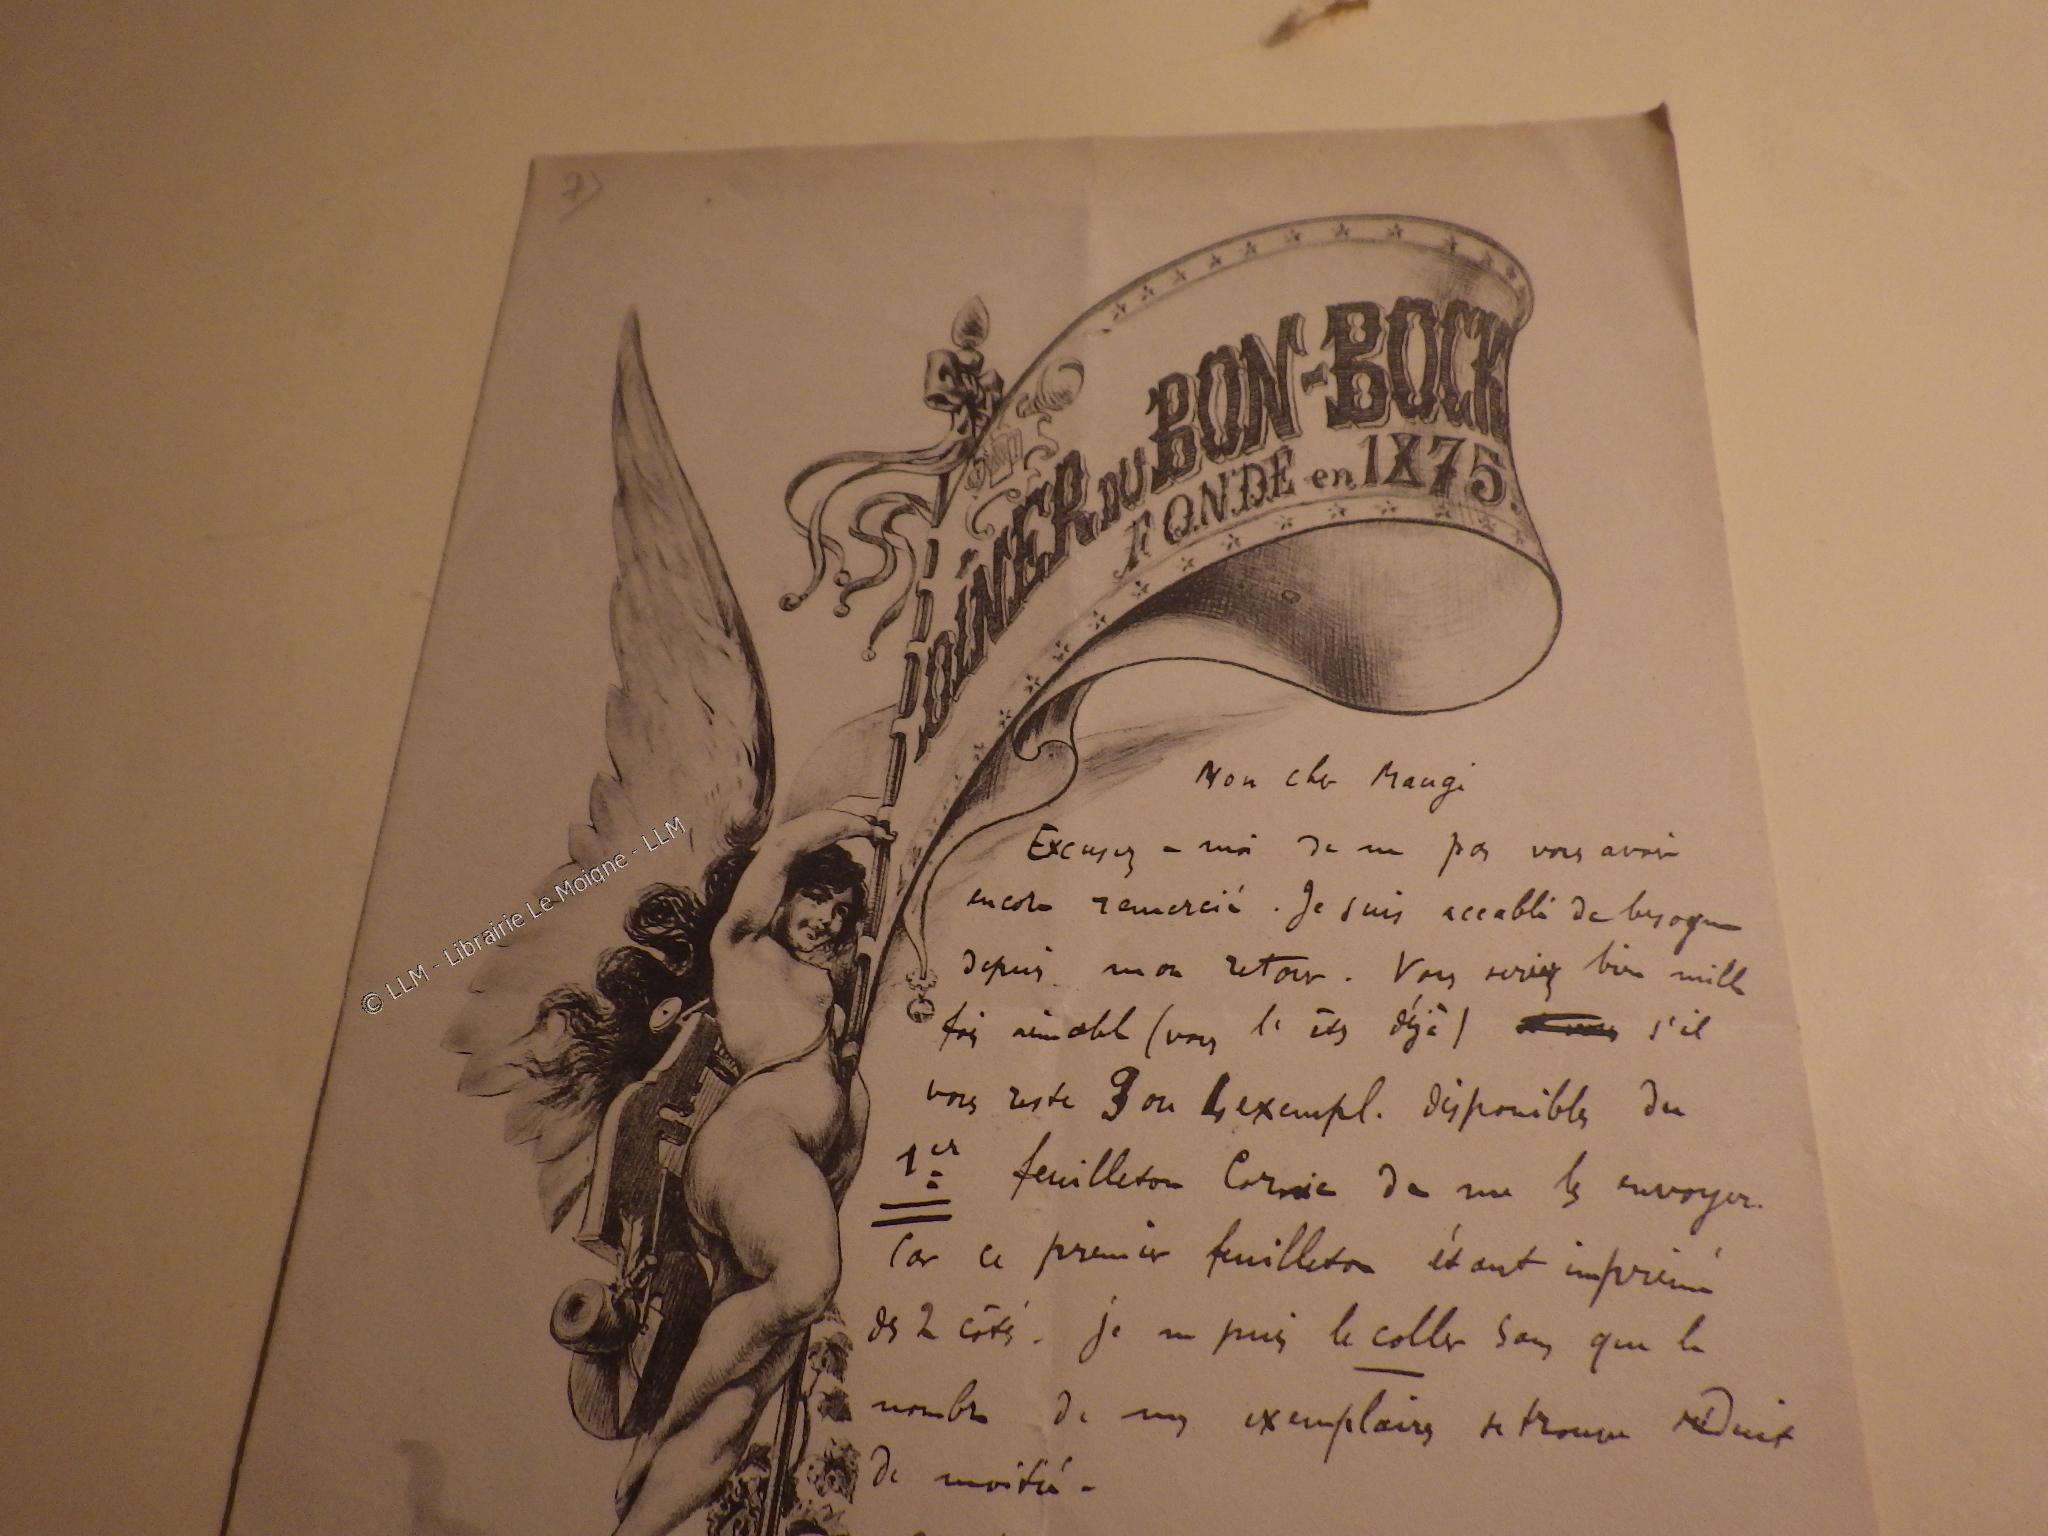 DÎNER DU BON-BOCK
FONDÉ en 1875.
Mon cher Maugi
Excusez-moi de ne pas vous avoir
encore remercié. Je suis accablé de besogne
depuis mon retour. Vous seriez bien mille
fois aimable (vous l'êtes déjà) s'il
vous reste 3 ou 4 exempl. disponibles du
1er feuilleton de me les envoyer.
Car ce premier feuilleton étant imprimé
des 2 côtés. je ne puis le coller sans que le
nombre de mes exemplaires se trouve réduit
de moitié -
© LLM - Librairie Le Moigne - LLM